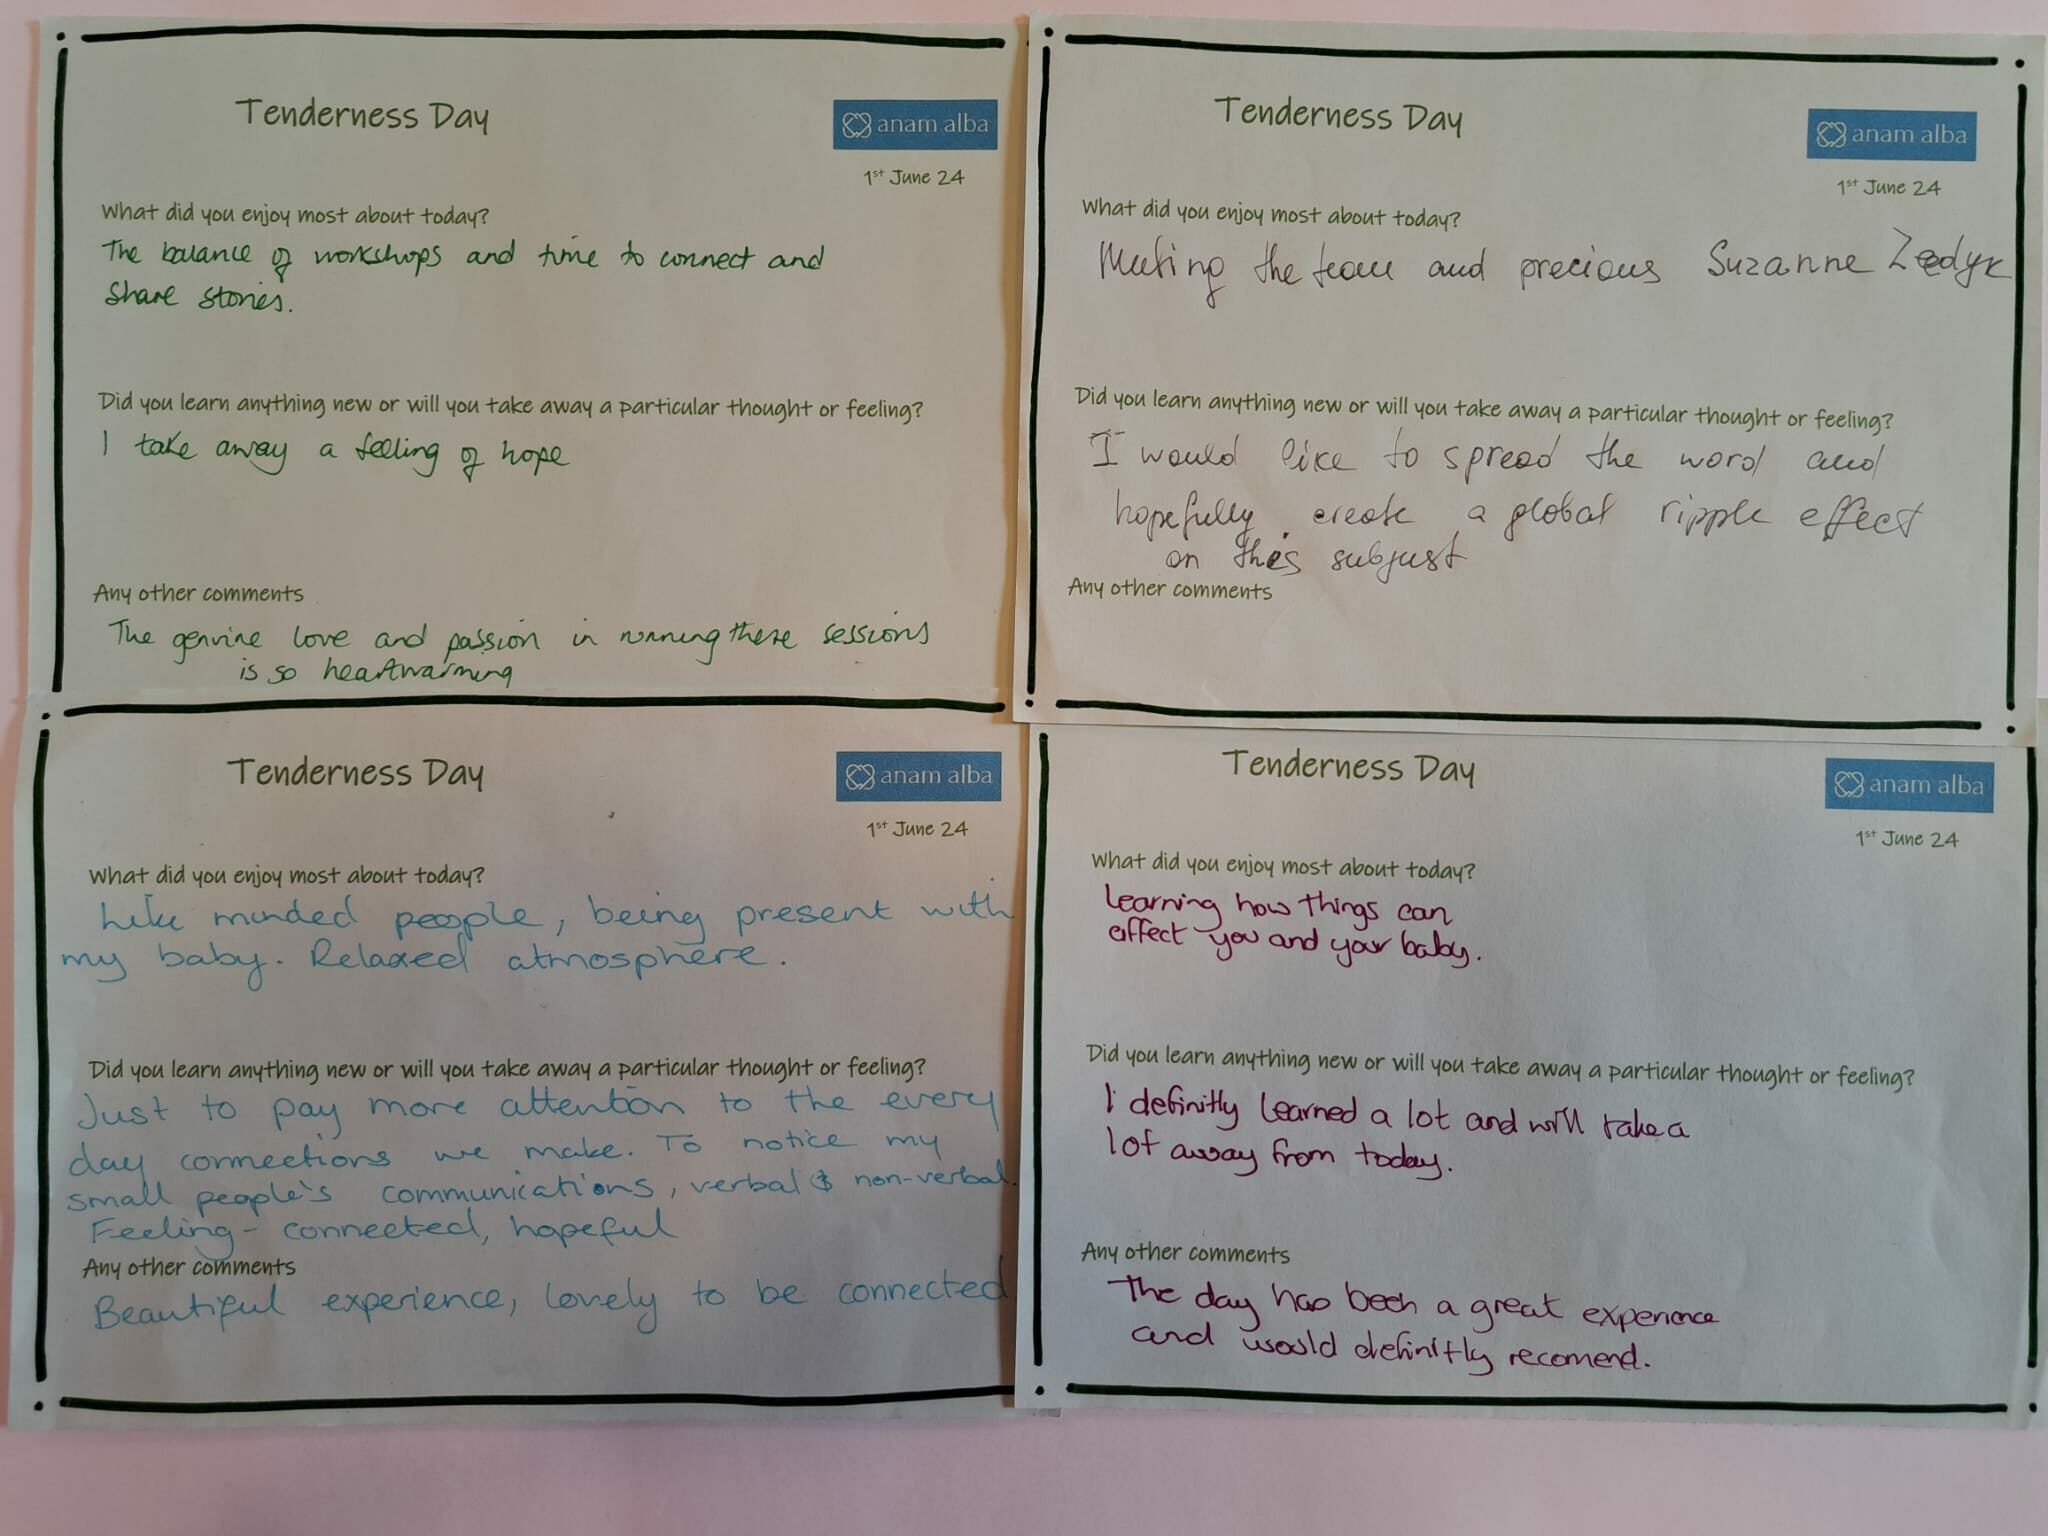 Tenderness Day
anam alba
1st June 24
What did you enjoy most about today?
The balance of workshops and time to connect and
share stories.
Did you learn anything new or will you take away a particular thought or feeling?
I take away a feeling of hope
Any other comments
The genuine love and passion in running these sessions
is so heartwarming
Tenderness Day
anam alba
1st June 24
What did you enjoy most about today?
Meeting the team and precious Suzanne Zeedyk
Did you learn anything new or will you take away a particular thought or feeling?
I would like to spread the word and
hopefully create a global ripple effect
on this subjust
Any other comments
Tenderness Day
anam alba
1st June 24
What did you enjoy most about today?
Like minded people, being present with
my baby. Relaxed atmosphere.
Did you learn anything new or will you take away a particular thought or feeling?
Just to pay more attention to the every
day connections we make. To notice my
small people's communications, verbal & non-verbal.
Feeling - connected, hopeful
Any other comments
Beautiful experience, lovely to be connected
Tenderness Day
anam alba
1st June 24
What did you enjoy most about today?
Learning how things can
affect you and your baby.
Did you learn anything new or will you take away a particular thought or feeling?
I definitly learned a lot and will take a
lot away from today.
Any other comments
The day has been a great experience
and would definitly recomend.